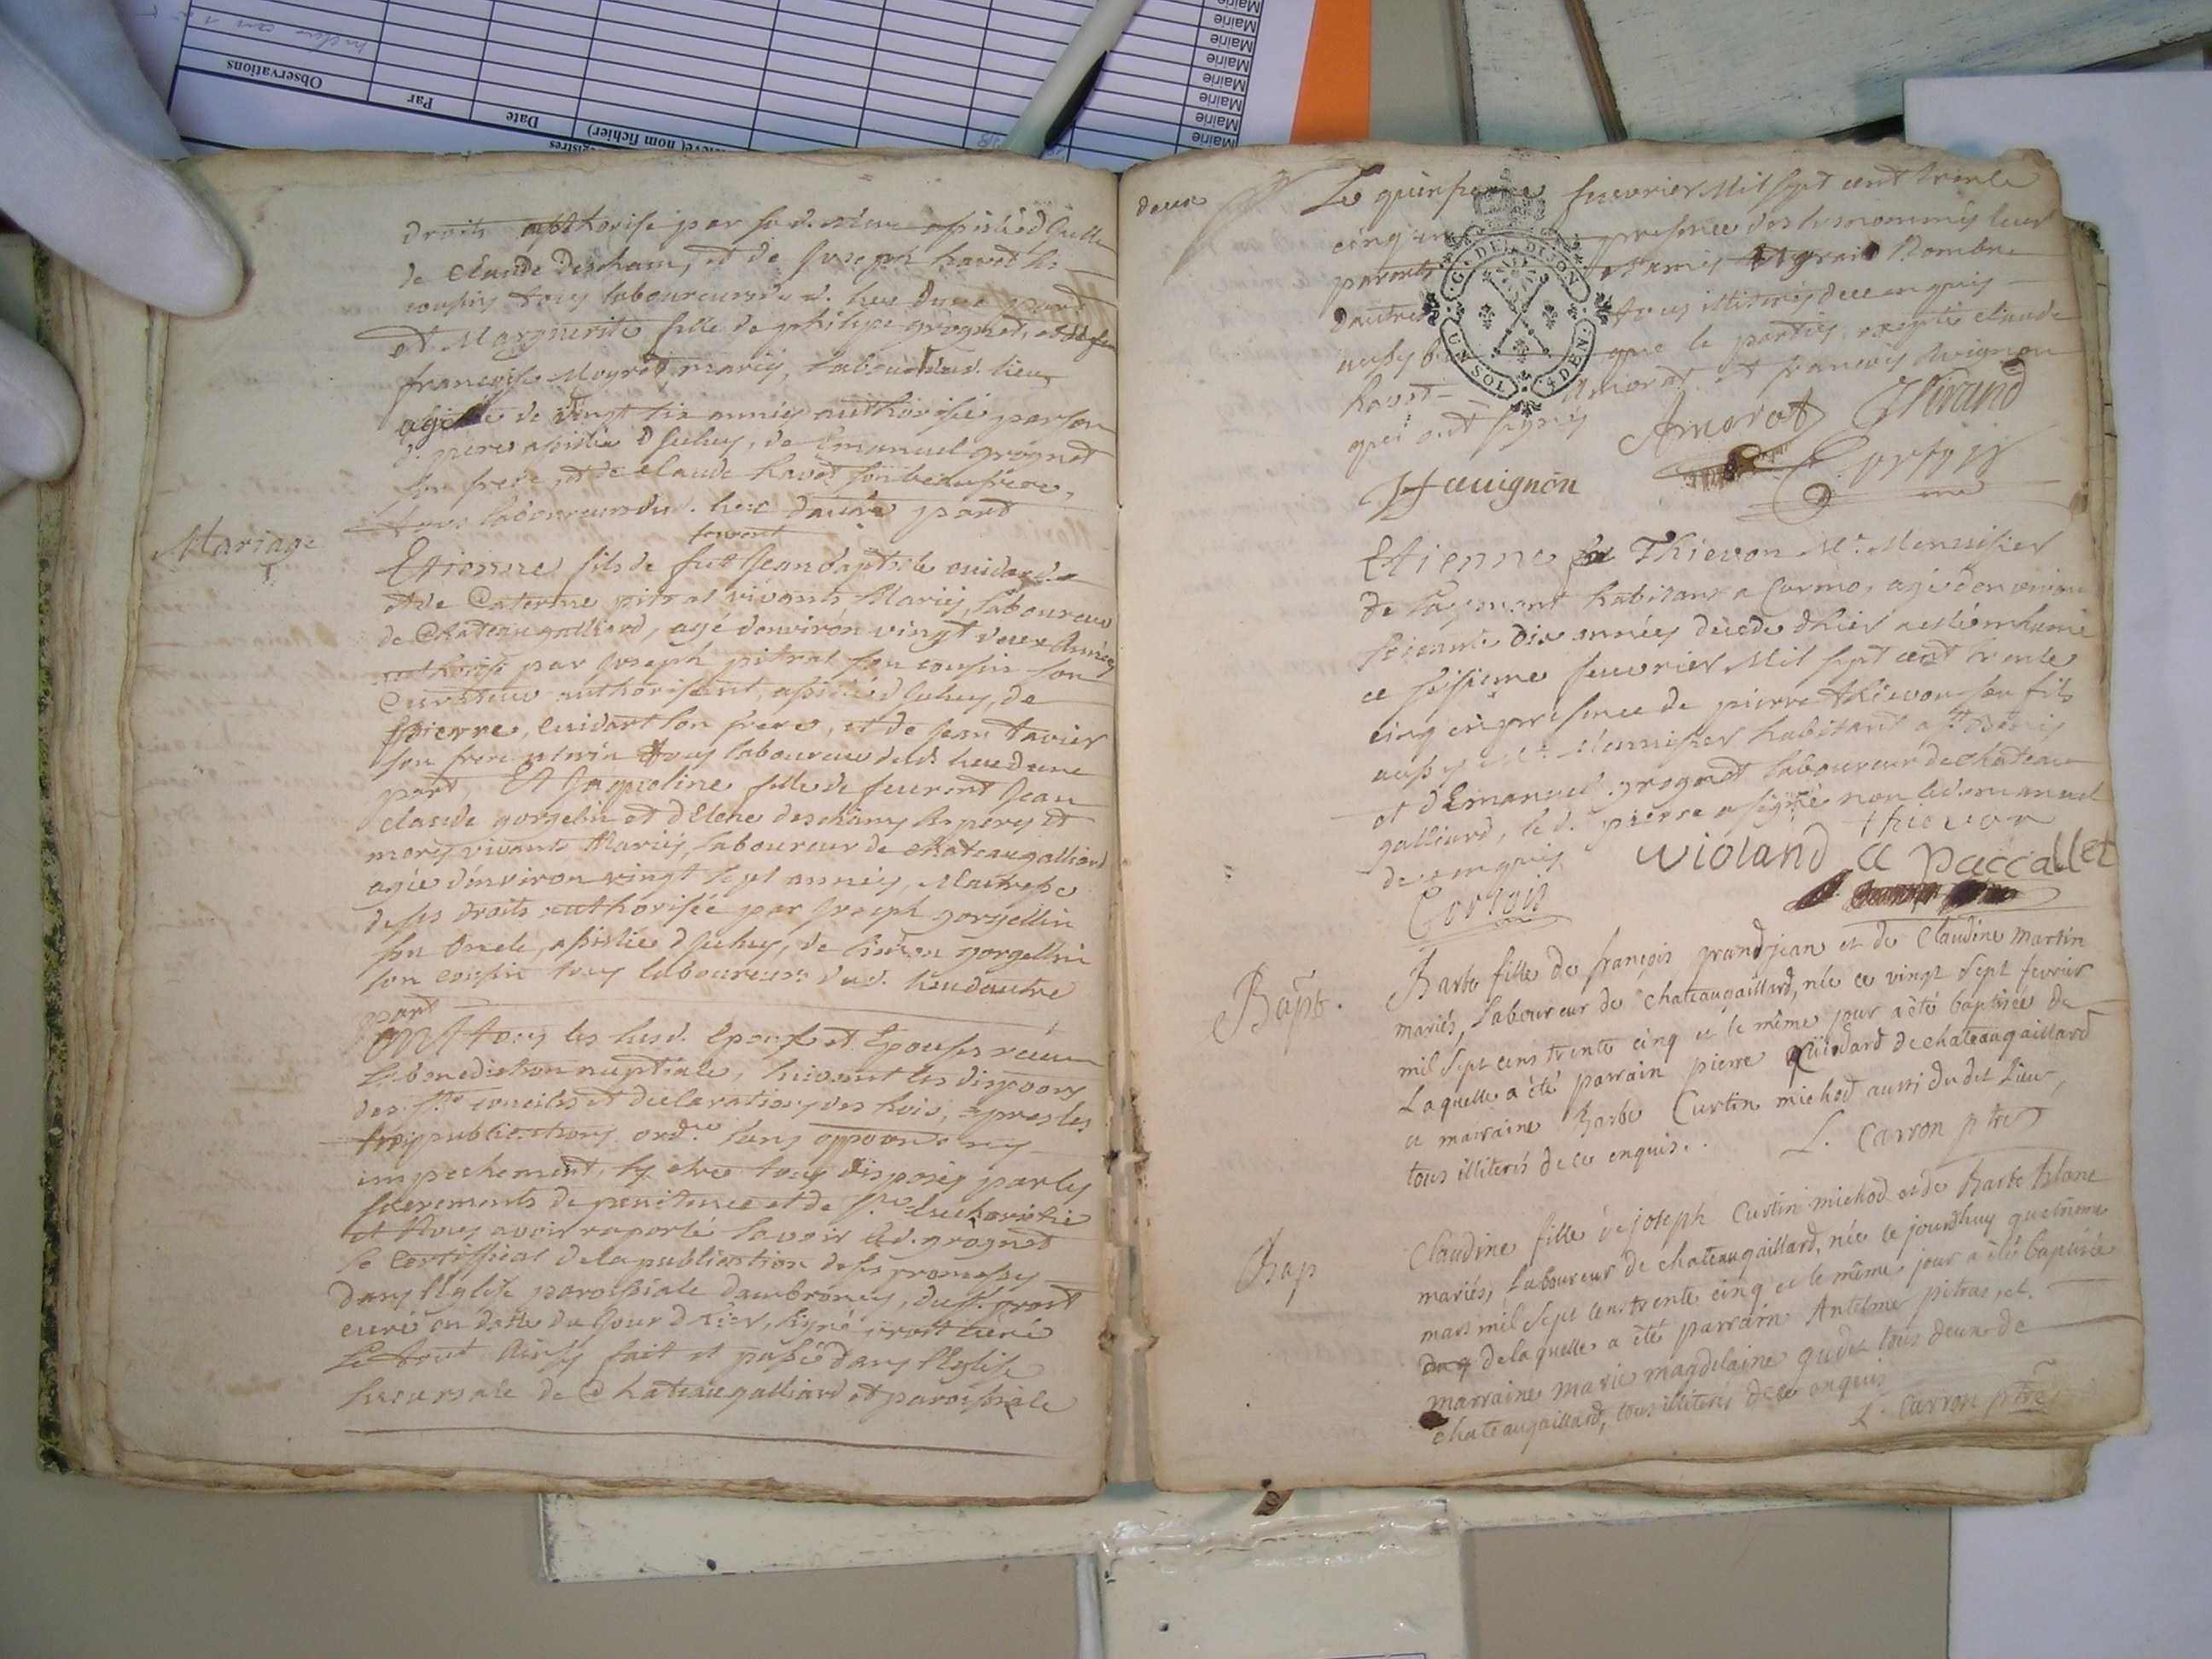 Observations
Par
Date
Mairie
Mairie
Mairie
Mairie
Mairie
Mairie
Mairie
droits authorise par sa d. mere assisté d'
de Claude Descham, et de Joseph havet ses
cousins tous laboureurs du d. lieu d'une part
et Marguerite fille de philipe grognet, et de feu
francoise Moyret mariés, laboureur dud. lieu
agée de vingt six années authorisée par son
d. pere assistée d'jceluy, de Emanuel grognet
son frere, et de Claude havet son beaufrere,
tous laboureurs dud. lieu d'autre part
Mariage
Etienne fils de fut Jean baptiste cuidard
et de Caterine pitrat vivants Mariés, laboureur
de Chateaugalliard, agé d'environ vingt deux Années
authorisé par Joseph pitrat son cousin son
Curateur authorisant, assisté d'jceluy, de
pierre, Cuidart son frere, et de Jean tavier
son frere uterin tous laboureurs dud. lieu d'une
part, Et Jaqueline fille de feu Jean
claude gorgelin et d'Elene deschamps ses peres et
meres vivants Mariés, laboureur de chateaugalliard
agée d'environ vingt sept années, Maitresse
de ses droits authorisée par Joseph gorgellin
son Oncle, assistée d'jceluy, de gorgellin
son cousin tous laboureurs dud. lieu d'autre
part
Ont tous les susd. Epoux et Epouses
la benediction nuptiale, suivant les
des Sts conciles et declarations des Rois, apres les
trois publications ordres sans ny
impechement, s'y etre tous disposés par les
sacrements de penitence et de Ste Eucharistie
et Nous avoir raporté savoir led. grognet
le Certifficat de la publication de ses promesses
dans l'Eglise paroissiale d'ambronay, du Sr. prost
curé en datte du Jour d'hier, signé prost curé
Le tout Ainsy fait et passé dans l'Eglise
succursale de Chateaugalliard et paroissiale
deux
Le quinsieme feuvrier Mil sept cent trente
cinq en presence des susnommés leurs
parents et amis et grand Nombre
d'autres tous illiterés de ce enquis
aussy que le parties, excepté claude
havet Amorot et francois Avignon
qui ont signés
Amorot
Girand
Hauignon
Cortois
G. DE DIJON
UN SOL 4 DEN.
Etienne Thievon Me. Menuisier
de habitant a Cormo, agé d'environ
soixante dix années decedé d'hier a esté inhumé
ce seisieme feuvrier Mil sept cent trente
cinq en presence de pierre thievon son fils
aussy Me. Menuisier habitant a St Denis
et d'Emanuel grognet laboureur de chateau
galliard, led. pierre a signé non led. emanuel
de ce enquis
thievon
violand
paccallet
Cortois
Bapt.
Barbe fille de françois grandjean et de Claudine martin
mariés, Laboureur de chateaugaillard, née ce vingt sept fevrier
mil sept cens trente cinq et le même jour a été baptisée de
Laquelle a été parrain pierre Quidard de chateaugaillard
et mairaine Barbe Curtin michod aussi du dit Lieu,
tous illiterés de ce enquis.
L. Carron ptre
Bap
Claudine fille de joseph Curtin michod et de Barbe blanc
mariés, Laboureur de chateaugaillard, née ce jourdhuy quatrieme
mars mil sept cens trente cinq et le même jour a été baptisée
de laquelle a été parrain Antelme pitras, et
marraine marie magdelaine gudet tous deux de
chateaugaillard, tous illiterés de ce enquis
L. Carron ptre